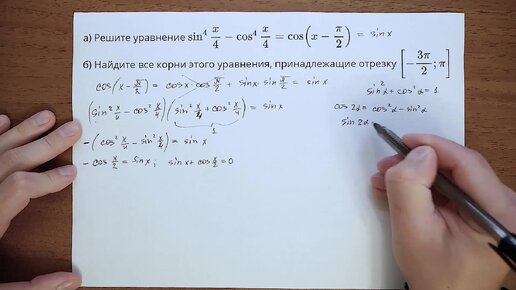 а) Решите уравнение sin⁴ x/4 − cos⁴ x/4 = cos(x − π/2) = sin x
б) Найдите все корни этого уравнения, принадлежащие отрезку [−3π/2; π]
cos(x − π/2) = cos x · cos π/2 + sin x · sin π/2 = sin x
(sin² x/4 − cos² x/4)(sin² x/4 + cos² x/4) = sin x
1
− (cos² x/4 − sin² x/4) = sin x
− cos x/2 = sin x; sin x + cos x/2 = 0
sin²α + cos²α = 1
cos 2α = cos²α − sin²α
sin 2α